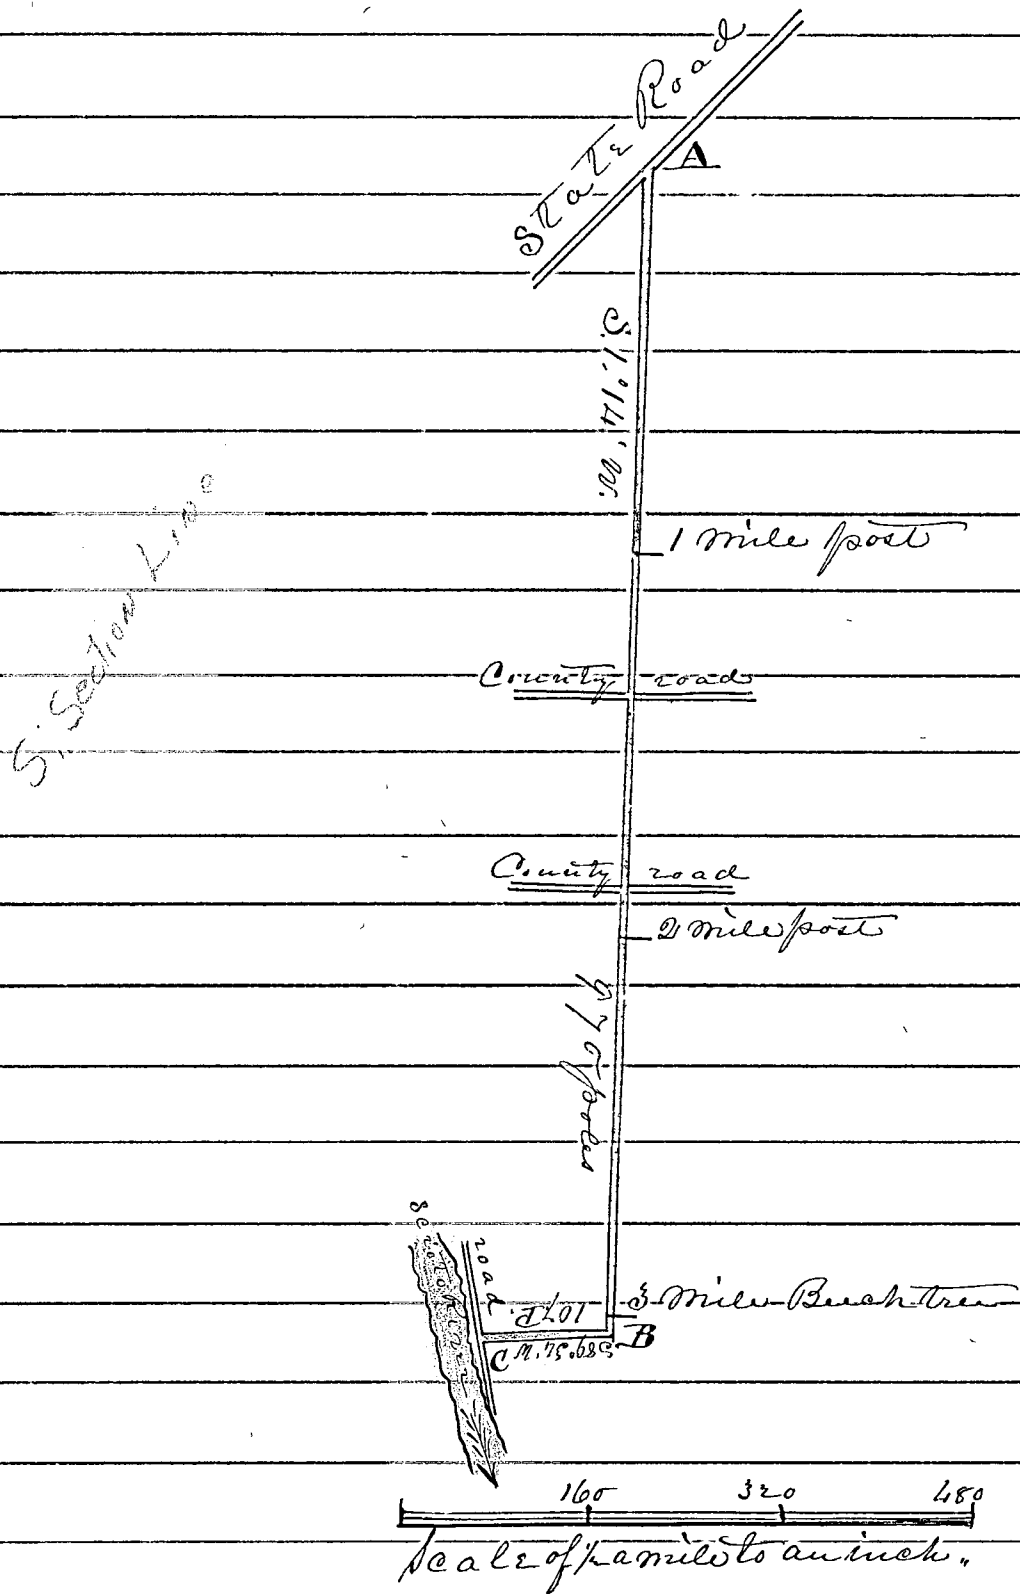 State Road
A
S. 1,° 14', W.
1 mile post
S. Section Line
County road
County road
2 mile post
970 poles
Scioto River
road
3 Mile Beech tree
107 P.
S 89° 34' W
B
C
160 320 480
Scale of ½ a mile to an inch.